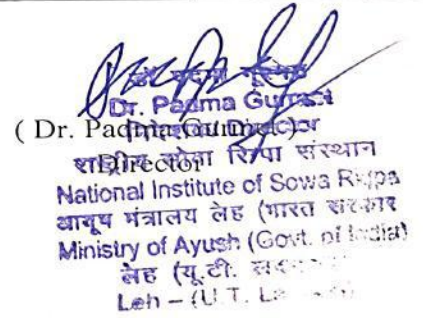 Dr. Padma Gurmet
( Dr. Padma Gurmet )
Director
राष्ट्रीय सोवा रिग्पा संस्थान
National Institute of Sowa Rigpa
आयूष मंत्रालय लेह (भारत सरकार
Ministry of Ayush (Govt. of India)
लेह (यू.टी.
Leh – (U.T.